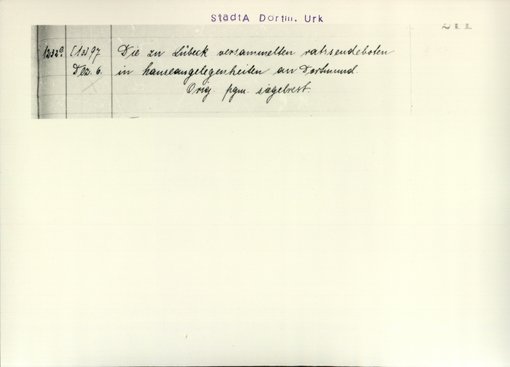 StadtA Dortm. Urk
Die zu Lübeck versammelten ratssendeboten
Dez. 6. in hanseangelegenheiten an Dortmund.
Orig. pgm. siegelrest.